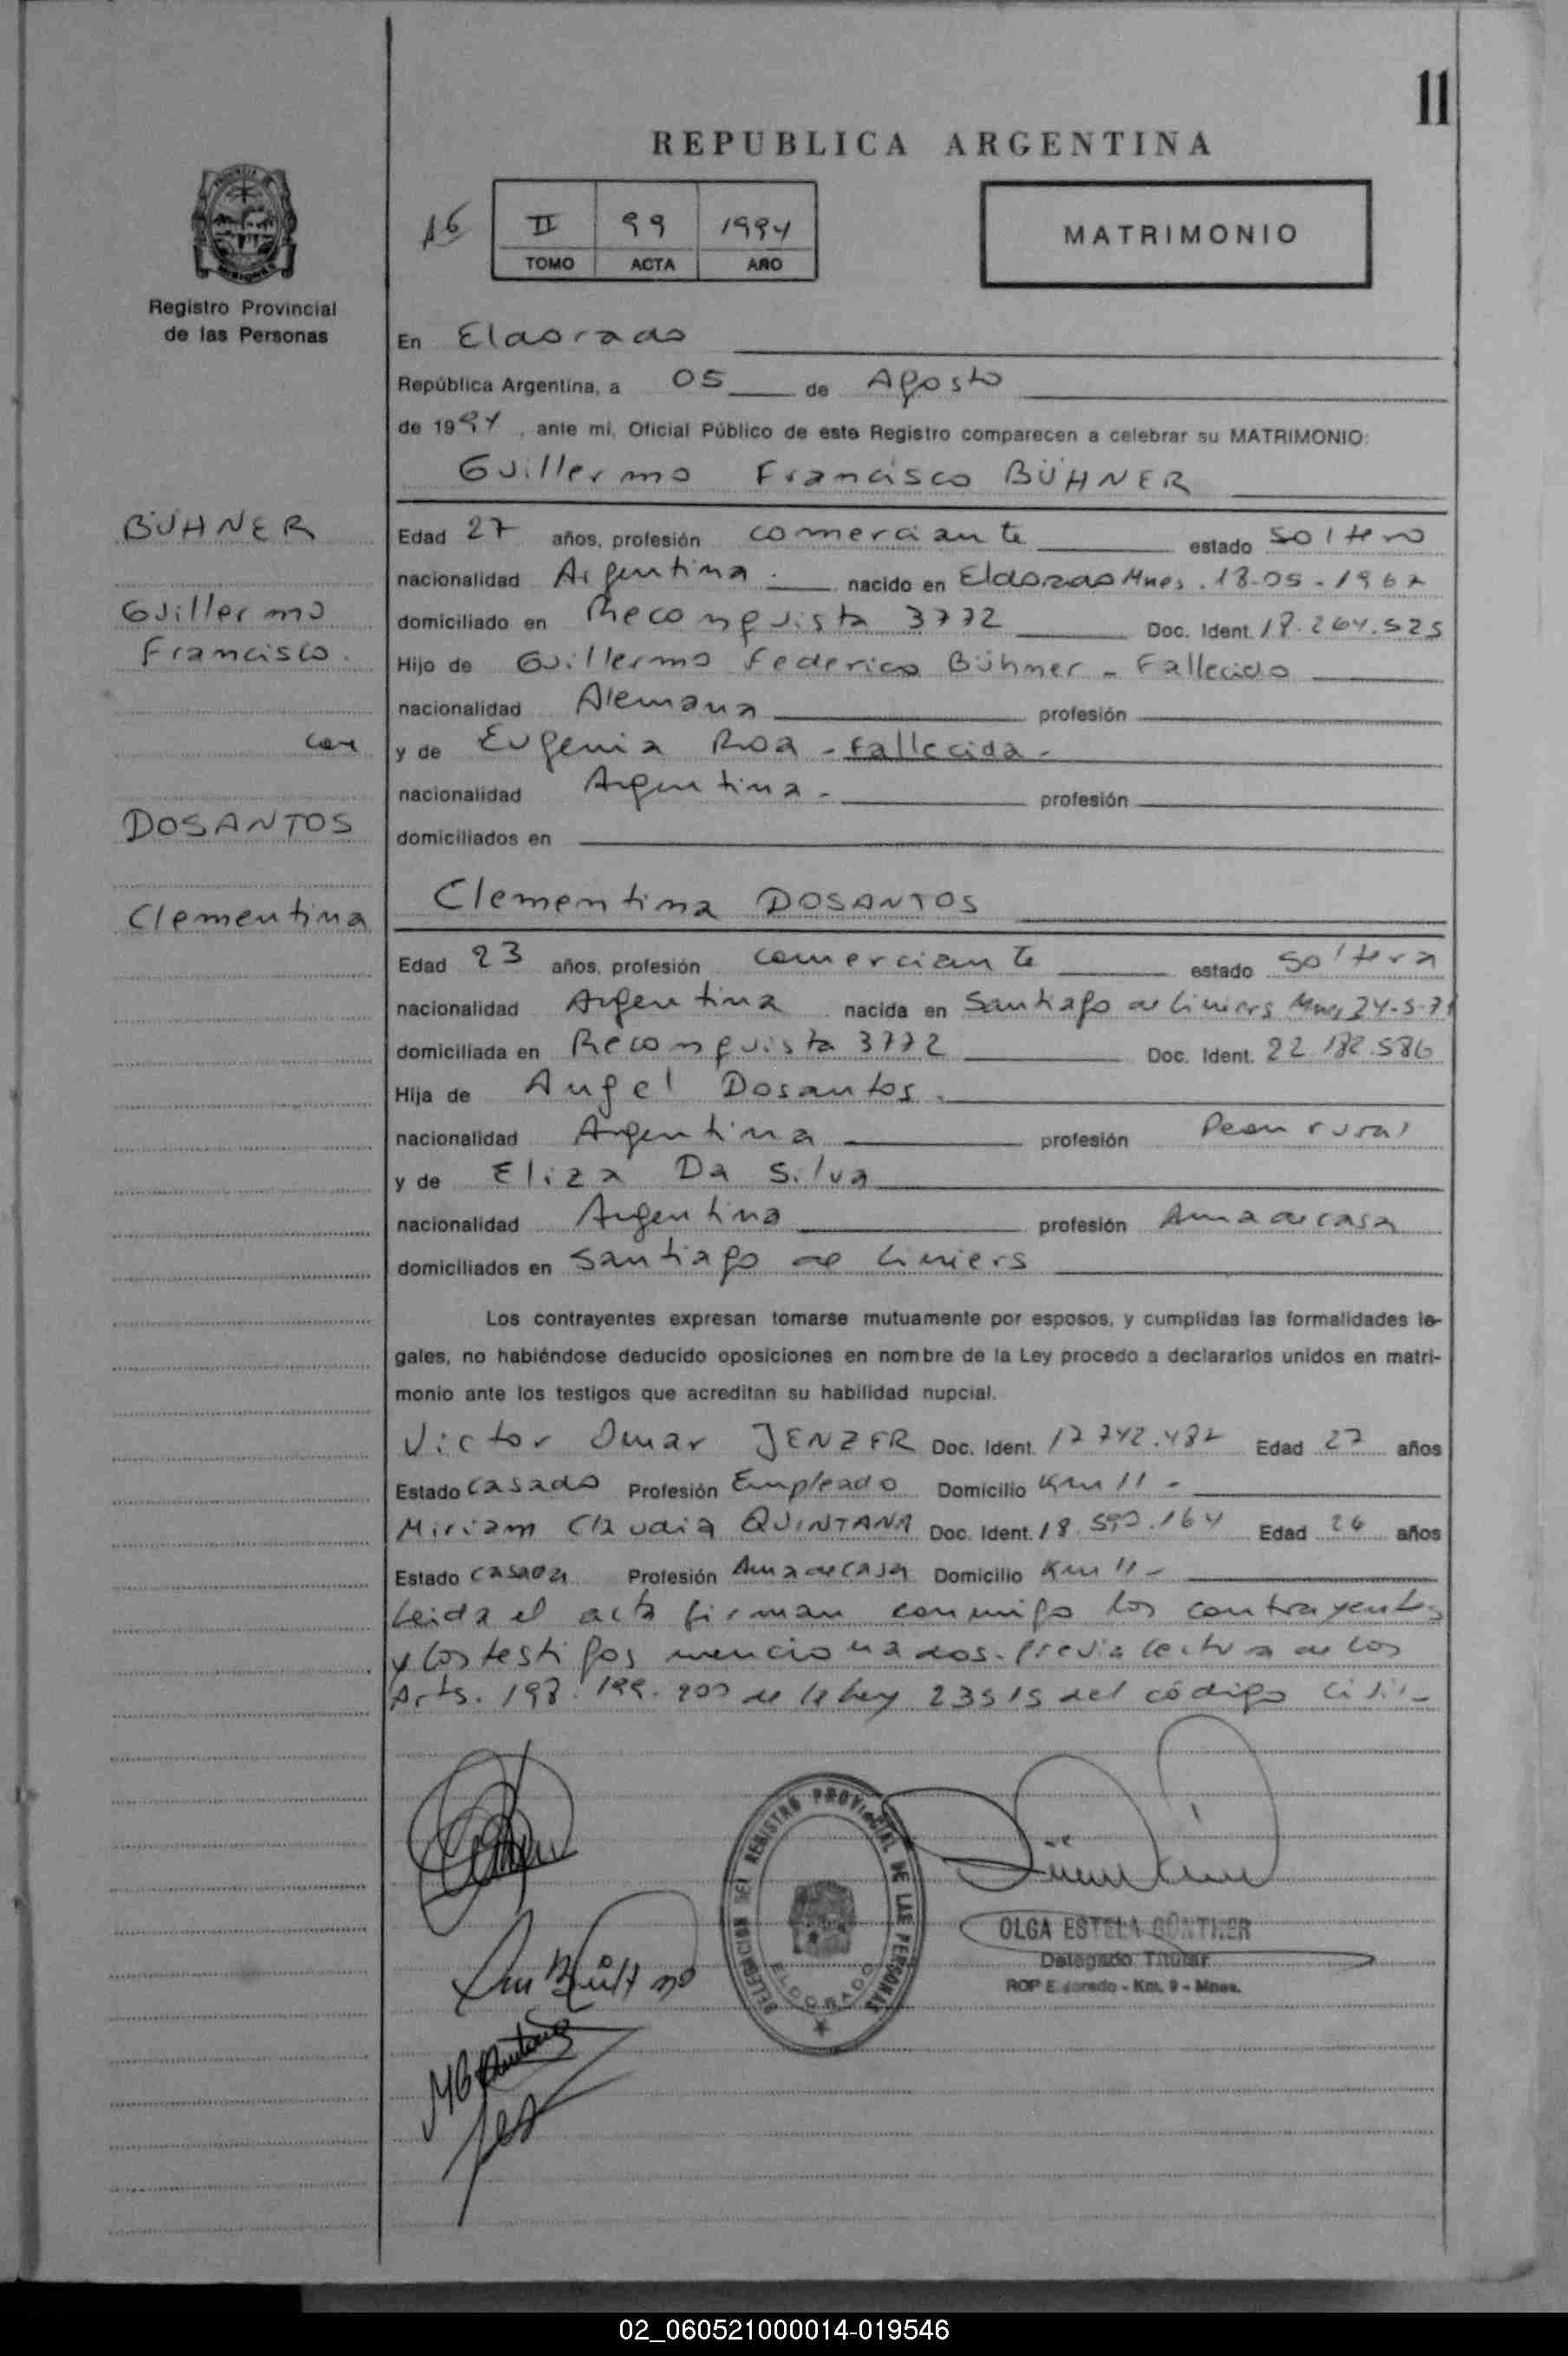 11
REPUBLICA ARGENTINA
16
II 99 1994
TOMO ACTA AÑO
MATRIMONIO
Registro Provincial
de las Personas
En Eldorado
República Argentina, a 05 de Agosto
de 1994, ante mi, Oficial Público de este Registro comparecen a celebrar su MATRIMONIO:
Guillermo Francisco BÜHNER
BÜHNER
Guillermo
Francisco.
con
DOSANTOS
Clementina
Edad 27 años, profesión comerciante estado soltero
nacionalidad Argentina. nacido en Eldorado Mnes. 18-05-1967
domiciliado en Reconquista 3772 Doc. Ident. 18.264.525
Hijo de Guillermo Federico Bühner - Fallecido
nacionalidad Alemana profesión
y de Eugenia Roa - Fallecida -
nacionalidad Argentina - profesión
domiciliados en
Clementina DOSANTOS
Edad 23 años, profesión comerciante estado soltera
nacionalidad Argentina nacida en Santiago de Liniers Mnes 24-5-71
domiciliada en Reconquista 3772 Doc. Ident. 22.182.586
Hija de Angel Dosantos.
nacionalidad Argentina profesión Peon rural
y de Eliza Da Silva
nacionalidad Argentina profesión Ama de casa
domiciliados en Santiago de Liniers
Los contrayentes expresan tomarse mutuamente por esposos, y cumplidas las formalidades le-
gales, no habiéndose deducido oposiciones en nombre de la Ley procedo a declararlos unidos en matri-
monio ante los testigos que acreditan su habilidad nupcial.
Victor Omar JENZER Doc. Ident. 17.742.482 Edad 27 años
Estado casado Profesión Empleado Domicilio Km 11 -
Miriam Claudia QUINTANA Doc. Ident. 18.590.164 Edad 26 años
Estado casada Profesión Ama de casa Domicilio Km 11 -
Leida el acta firman conmigo los contrayentes
y los testigos mencionados. Previa lectura de los
Arts. 198. 199. 200 de la ley 23515 del código civil -
DELEGACION DEL REGISTRO PROVINCIAL DE LAS PERSONAS
ELDORADO
OLGA ESTELA GÜNTHER
Delegado Titular
ROP Eldorado - Km. 9 - Mnes.
02_060521000014-019546